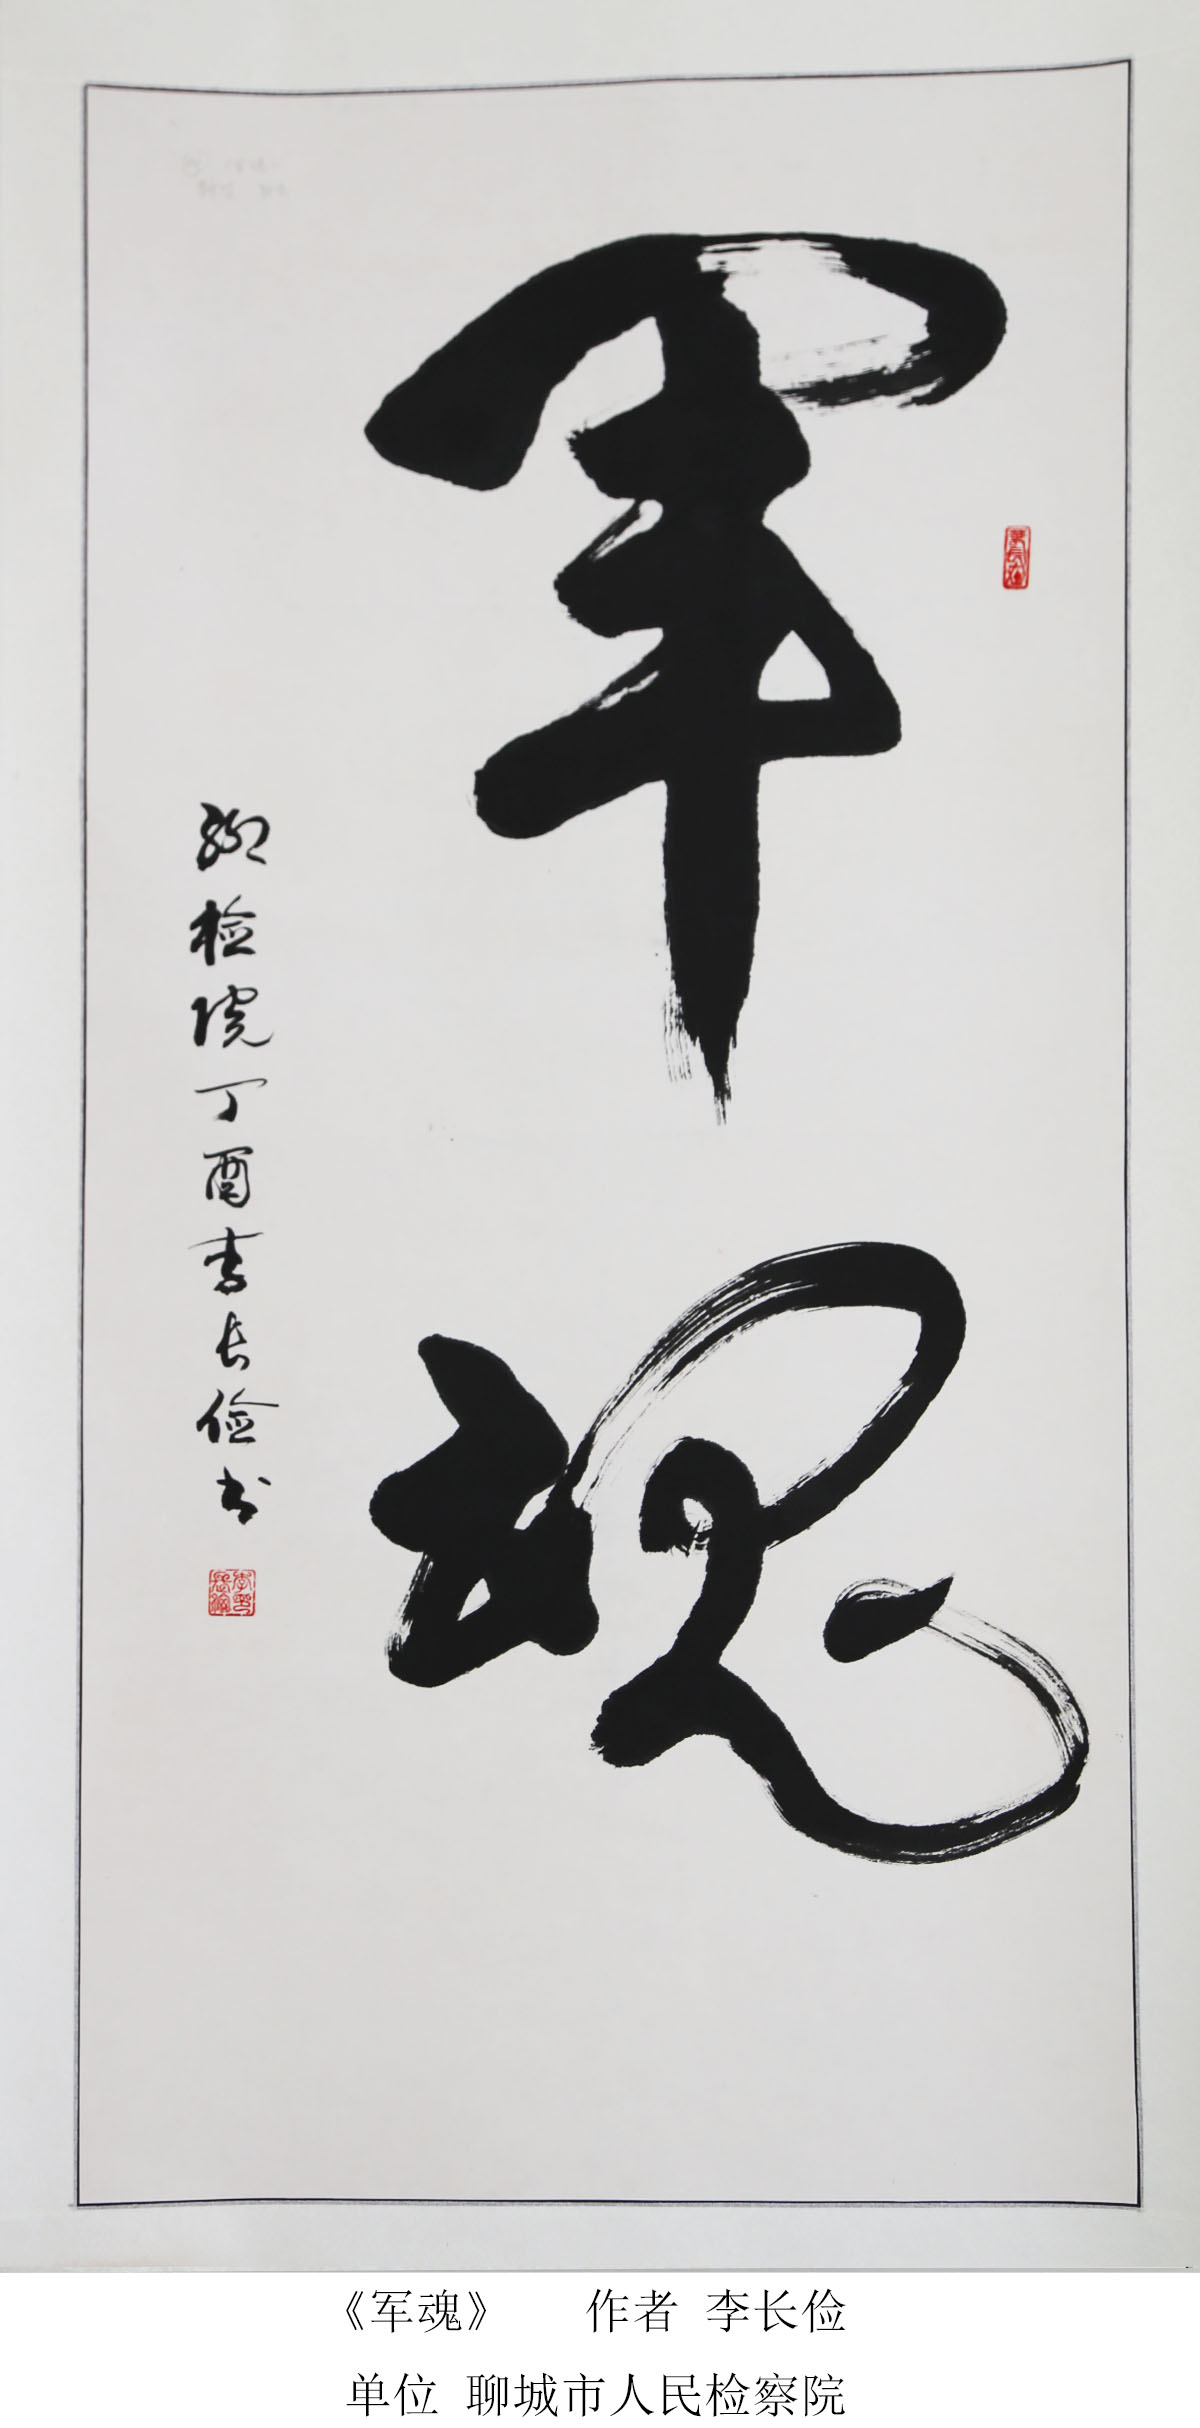 軍魂
聊检院丁酉李长俭书
《军魂》 作者 李长俭
单位 聊城市人民检察院